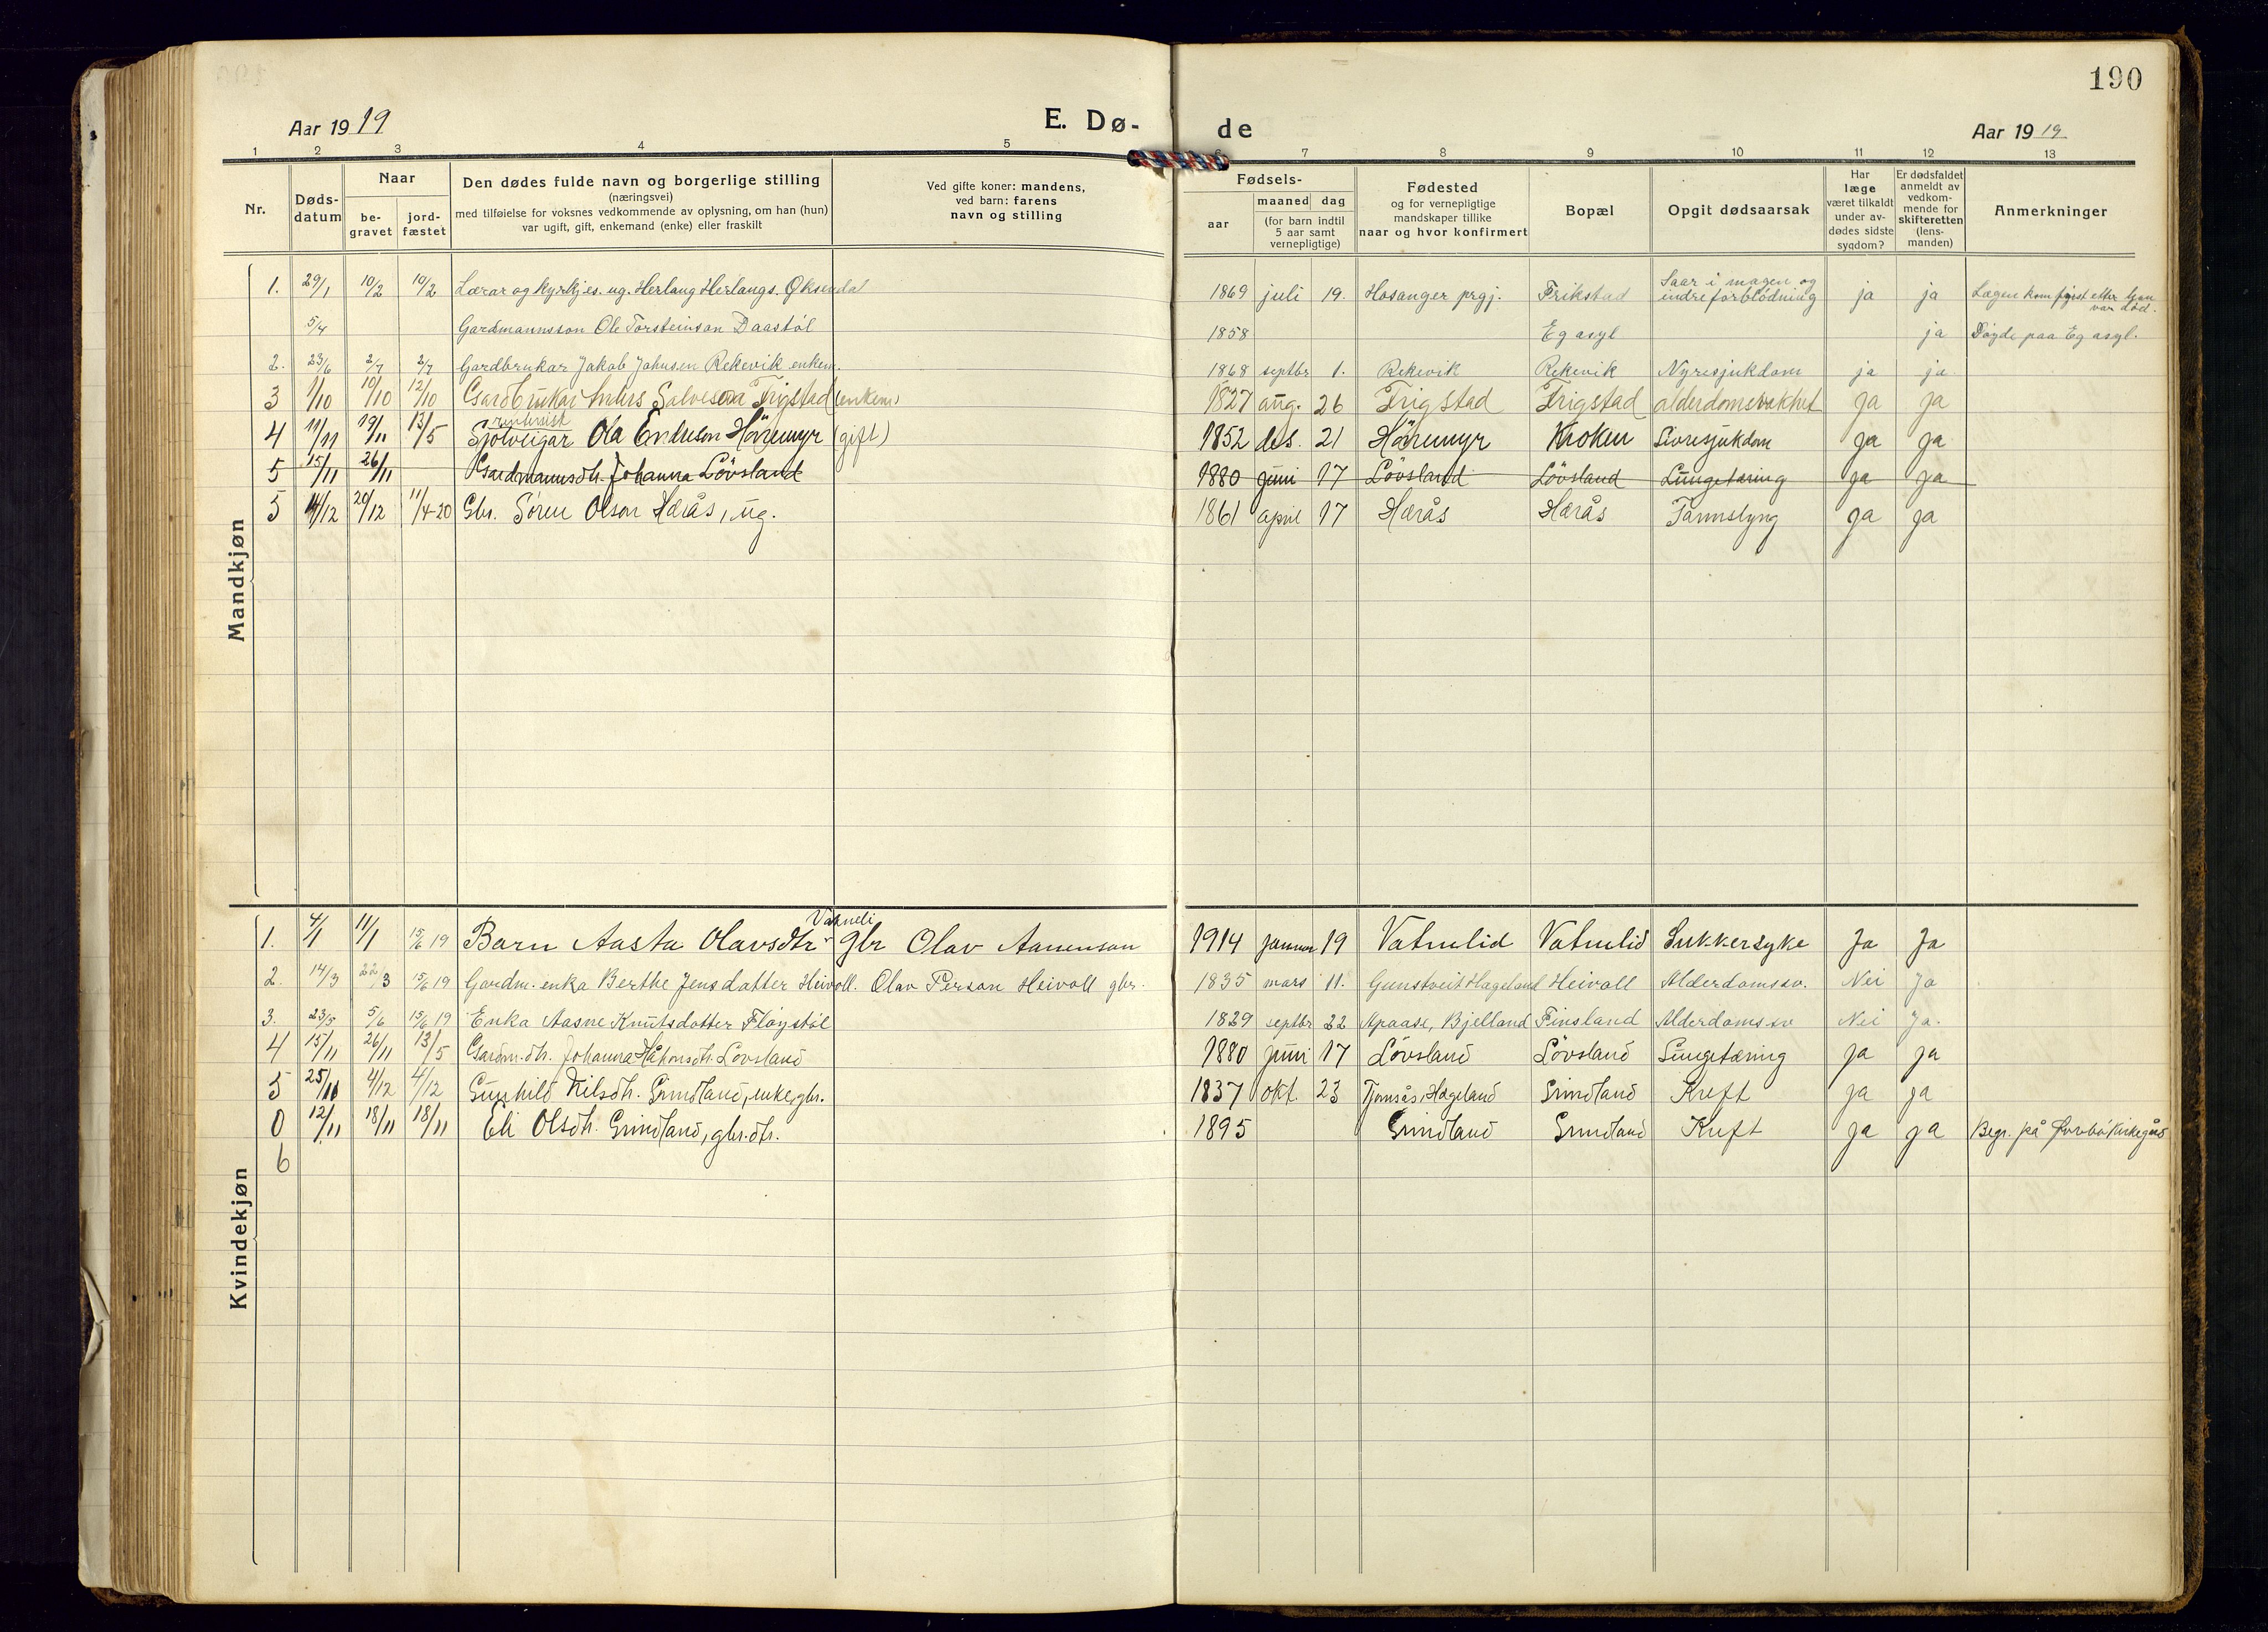 190
Aar 1919
E. Dø-
de
Aar 1919
1 2 3 4 5 6 7 8 9 10 11 12 13
Nr.
Døds-
datum
Naar
be-
gravet
jord-
fæstet
Den dødes fulde navn og borgerlige stilling
(næringsvei)
med tilføielse for voksnes vedkommende av oplysning, om han (hun)
var ugift, gift, enkemand (enke) eller fraskilt
Ved gifte koner: mandens,
ved barn: farens
navn og stilling
Fødsels-
aar
maaned dag
(for barn indtil
5 aar samt
vernepligtige)
Fødested
og for vernepligtige
mandskaper tillike
naar og hvor konfirmert
Bopæl
Opgit dødsaarsak
Har
læge
været tilkaldt
under av-
dødes sidste
sygdom?
Er dødsfaldet
anmeldt av
vedkom-
mende for
skifteretten
(lens-
manden)
Anmerkninger
Mandkjøn
1. 29/1 10/2 10/2 Lærar og kyrkjes. ug. Herlaug Herlaugs. Øksendal 1869 juli 19. Hosanger prgj. Frikstad Saar i magen og indre forblødning ja ja Lægen kom fyrst etter han var død.
5/4 Gardmannsson Ole Torsteinson Daastøl 1858 Eg asyl ja Døyde paa Eg asyl.
2. 23/6 2/7 2/7 Gardbrukar Jakob Jahnsen Rekevik enkem. 1868 septbr 1. Rekevik Rekevik Nyresjukdom ja ja
3 1/10 10/10 12/10 Gardbrukar Anders Salveson Frigstad (enkem) 1827 aug. 26 Frigstad Frigstad alderdomsvakhet ja ja
4 11/11 19/11 13/5 Sjølveigar Ola Endreson Håremyr (gift) 1852 des. 21 Håremyr Kroken Livresjukdom ja ja
5 15/11 26/11 Gardmannsdtr. Johanna Lövsland 1880 juni 17 Lövsland Lövsland Lungetæring ja ja
5 14/12 20/12 11/4-20 Gbr. Sören Olson Hærås, ug. 1861 april 17 Hærås Hærås Tarmslyng ja ja
Kvindekjøn
1. 4/1 11/1 15/6 19 Barn Aasta Olavsdtr Vatneli gbr Olav Aanenson 1914 januar 19 Vatnelid Vatnelid Sukkersyke Ja Ja
2. 14/3 22/3 15/6 19 Gardm. enka Berthe Jensdatter Heivoll. Olav Person Heivoll gbr. 1835 mars 11. Gunstveit Hageland Heivoll Alderdomssv. Nei Ja
3. 23/5 5/6 15/6 19 Enka Aasne Knutsdotter Fløystøl 1829 septbr 22 Apaase, Bjelland Finsland Alderdoms sv Nei Ja.
4 15/11 26/11 13/5 Gardm.dtr. Johanna Håkonsdtr. Lovsland 1880 juni 17 Lövsland Lövsland Lungetæring ja ja
5 25/11 4/12 4/12 Gunhild Nilsdtr. Grindland, enke, gbr. 1837 okt. 23 Tjomsås, Hægeland Grindland Kreft ja ja
0 12/11 18/11 18/11 Eli Olsdtr. Grindland, gbr.dtr. 1895 Grindland Grindland Kreft ja ja Begr. på Øvrebø kirkegård
6